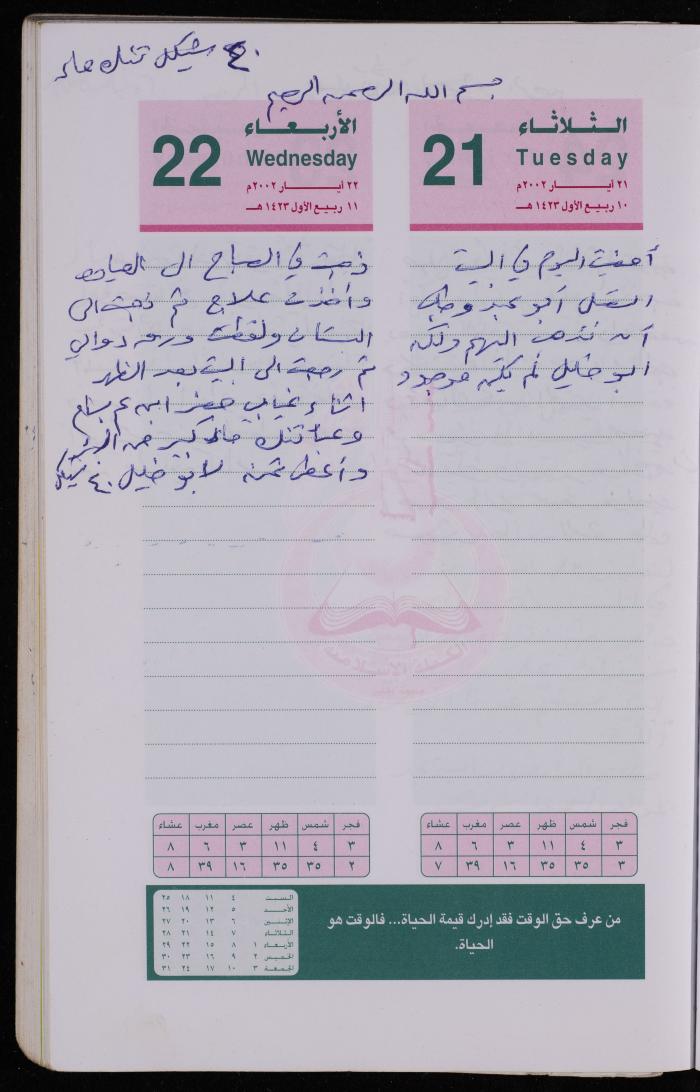 ٤٠ شيكل تنك ماء
بسم الله الرحمن الرحيم
الثلاثاء
21
Tuesday
٢١ أيــار ٢٠٠٢م
١٠ ربيع الأول ١٤٢٣ هـ
أمضيت اليوم في البيت
اتصل أبو
أن نذهب اليهم ولكن
ابو خليل لم يكن موجود
الأربعاء
22
Wednesday
٢٢ أيــار ٢٠٠٢م
١١ ربيع الأول ١٤٢٣ هـ
ذهبت في الصباح الى العيادة
وأخذت علاج ثم ذهبت الى
البستان ولقطت ورق دوالي
ثم رجعت الى البيت بعد الظهر
اثناء غيابي حضر ابن عم بسام
وعبأ تنك ماء كبير من البئر
وأعطى ثمنه لابو خليل ٤٠ شيكل
الكتلة الاسلامية
فجر شمس ظهر عصر مغرب عشاء
٣ ٤ ١١ ٣ ٦ ٨
٣ ٣٥ ٣٥ ١٦ ٣٩ ٧
فجر شمس ظهر عصر مغرب عشاء
٣ ٤ ١١ ٣ ٦ ٨
٢ ٣٥ ٣٥ ١٦ ٣٩ ٨
من عرف حق الوقت فقد إدرك قيمة الحياة... فالوقت هو
الحياة.
السبت ٤ ١١ ١٨ ٢٥
الأحد ٥ ١٢ ١٩ ٢٦
الإثنين ٦ ١٣ ٢٠ ٢٧
الثلاثاء ٧ ١٤ ٢١ ٢٨
الأربعاء ١ ٨ ١٥ ٢٢ ٢٩
الخميس ٢ ٩ ١٦ ٢٣ ٣٠
الجمعة ٣ ١٠ ١٧ ٢٤ ٣١